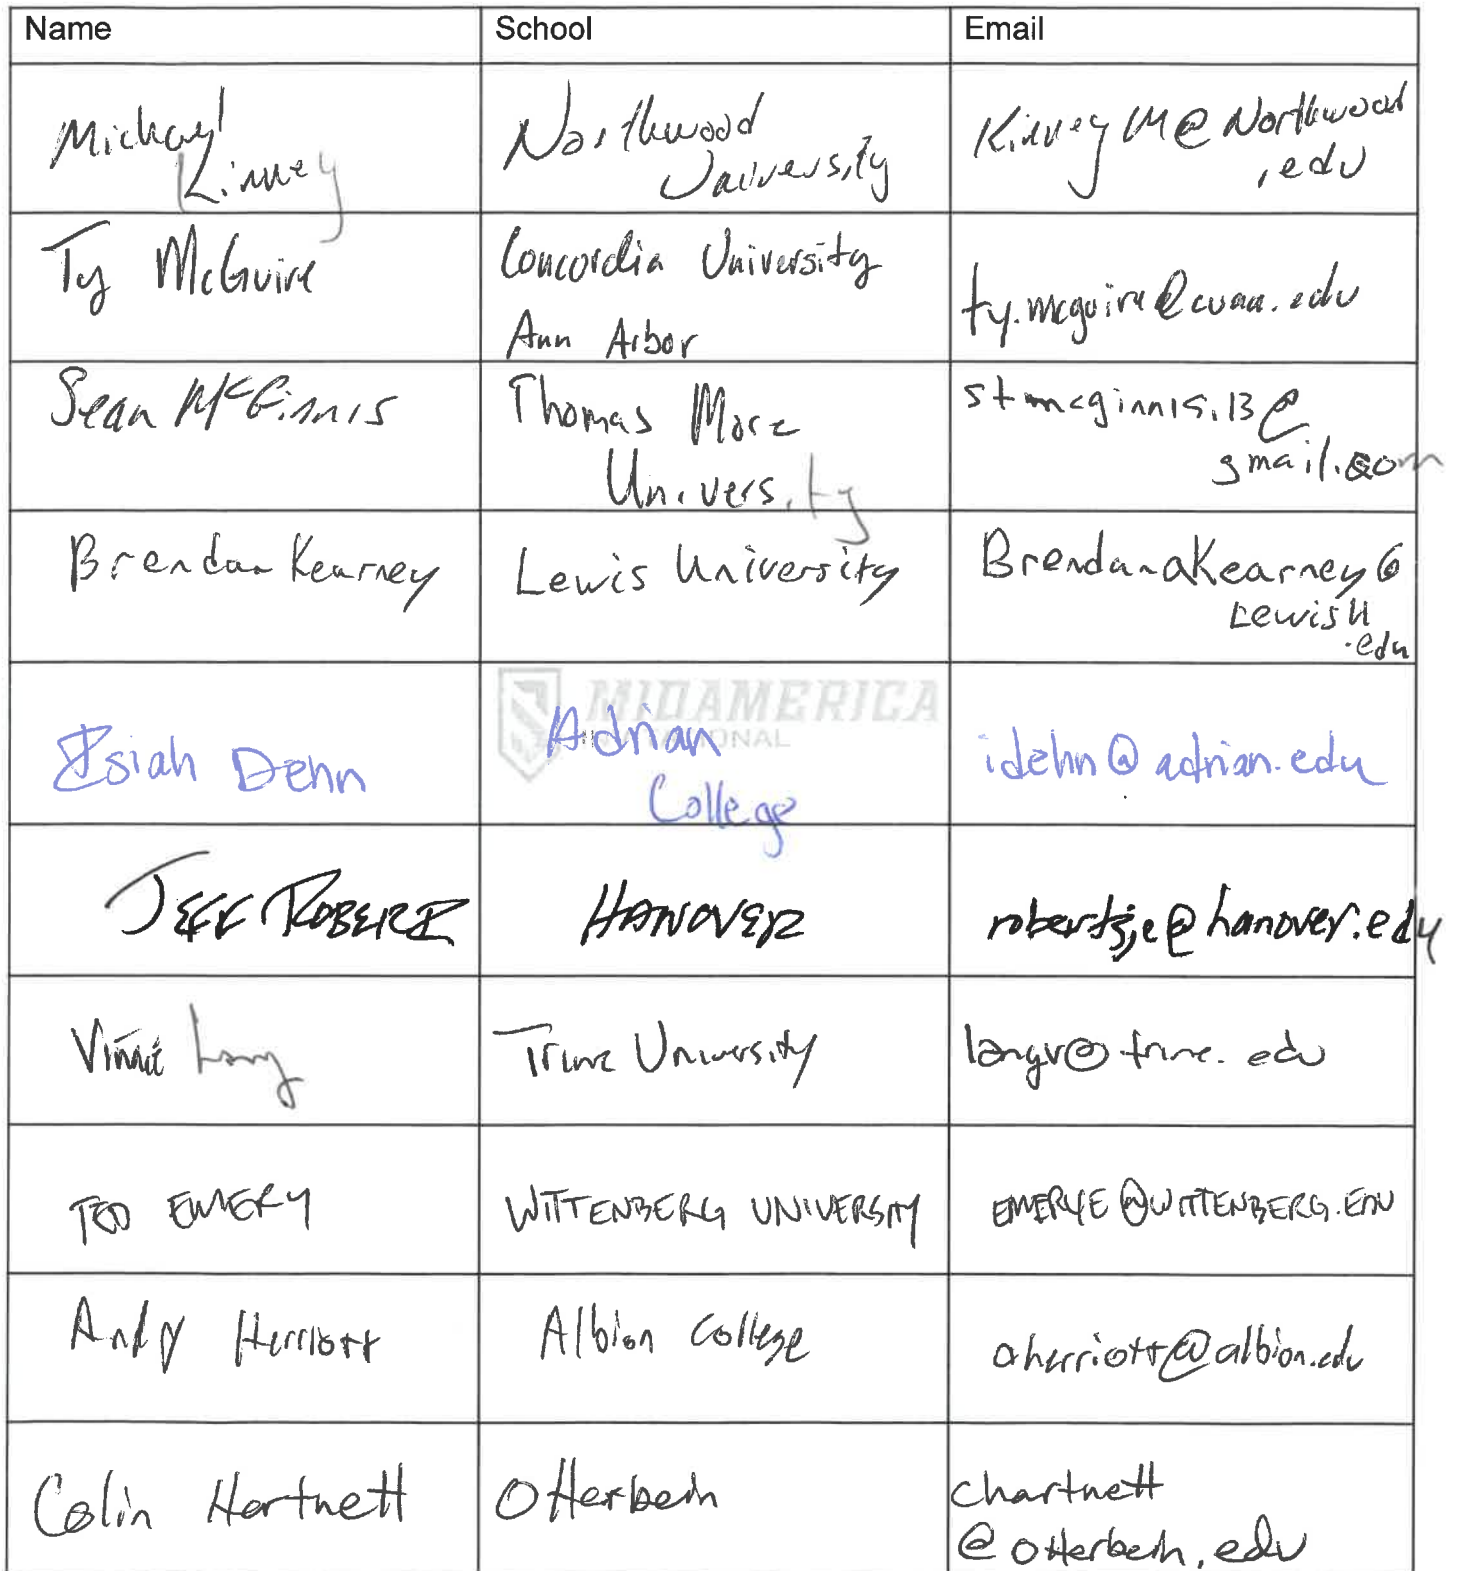 Name School Email
Michael Kinney Northwood University KinneyM@Northwood.edu
Ty McGuire Concordia University Ann Arbor ty.mcguire@cuaa.edu
Sean McGinnis Thomas More University stmcginnis.13@gmail.com
Brendan Kearney Lewis University BrendanaKearney@LewisU.edu
MIDAMERICA
Isiah Dehn Adrian College idehn@adrian.edu
JEFF ROBERTS HANOVER robertsje@hanover.edu
Vinnie Lang Trine University langv@trine.edu
TED EMERY WITTENBERG UNIVERSITY EMERYE@WITTENBERG.EDU
Andy Herriott Albion College aherriott@albion.edu
Colin Hartnett Otterbein chartnett@otterbein.edu